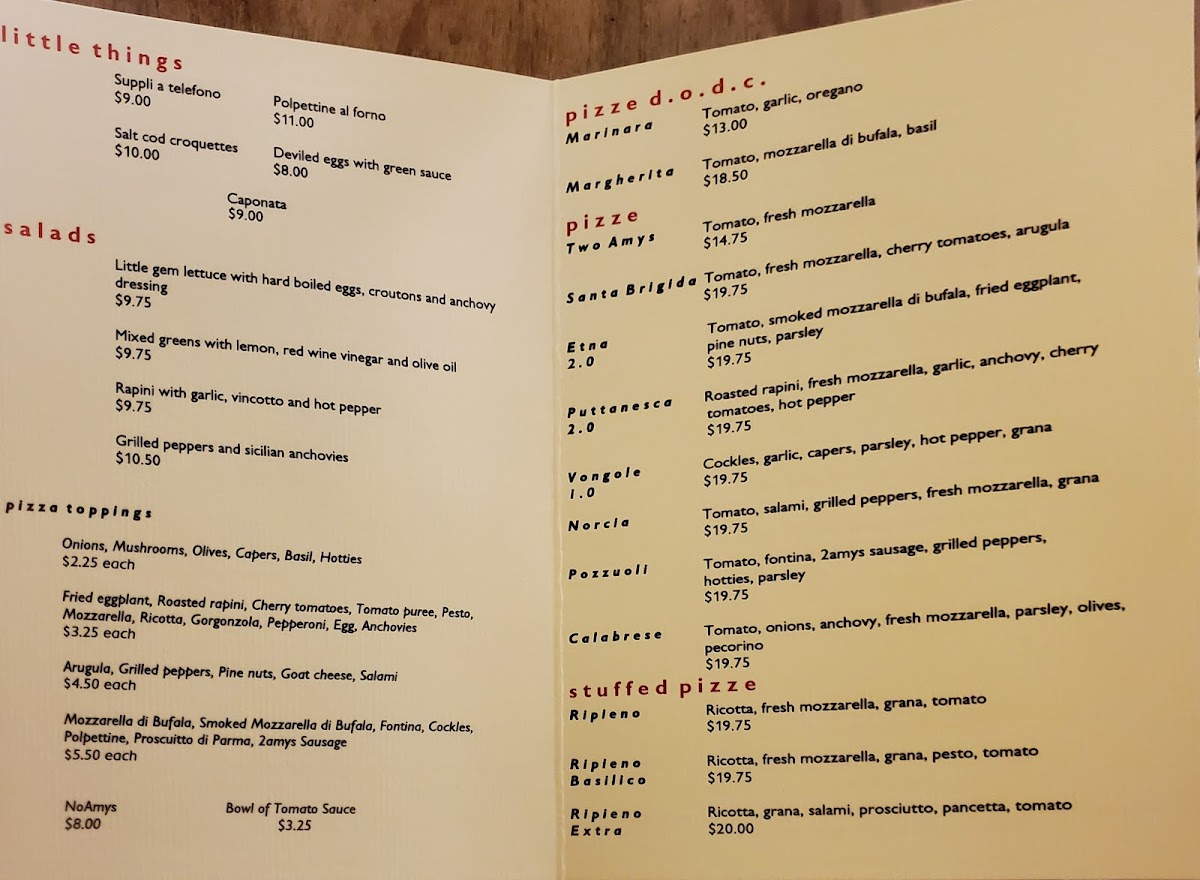 little things
Suppli a telefono
$9.00
Polpettine al forno
$11.00
Salt cod croquettes
$10.00
Deviled eggs with green sauce
$8.00
Caponata
$9.00
salads
Little gem lettuce with hard boiled eggs, croutons and anchovy
dressing
$9.75
Mixed greens with lemon, red wine vinegar and olive oil
$9.75
Rapini with garlic, vincotto and hot pepper
$9.75
Grilled peppers and sicilian anchovies
$10.50
pizza toppings
Onions, Mushrooms, Olives, Capers, Basil, Hotties
$2.25 each
Fried eggplant, Roasted rapini, Cherry tomatoes, Tomato puree, Pesto,
Mozzarella, Ricotta, Gorgonzola, Pepperoni, Egg, Anchovies
$3.25 each
Arugula, Grilled peppers, Pine nuts, Goat cheese, Salami
$4.50 each
Mozzarella di Bufala, Smoked Mozzarella di Bufala, Fontina, Cockles,
Polpettine, Proscuitto di Parma, 2amys Sausage
$5.50 each
NoAmys
$8.00
Bowl of Tomato Sauce
$3.25
pizze d.o.d.c.
Marinara
Tomato, garlic, oregano
$13.00
Margherita
Tomato, mozzarella di bufala, basil
$18.50
pizze
Two Amys
Tomato, fresh mozzarella
$14.75
Santa Brigida
Tomato, fresh mozzarella, cherry tomatoes, arugula
$19.75
Etna
2.0
Tomato, smoked mozzarella di bufala, fried eggplant,
pine nuts, parsley
$19.75
Puttanesca
2.0
Roasted rapini, fresh mozzarella, garlic, anchovy, cherry
tomatoes, hot pepper
$19.75
Vongole
1.0
Cockles, garlic, capers, parsley, hot pepper, grana
$19.75
Norcia
Tomato, salami, grilled peppers, fresh mozzarella, grana
$19.75
Pozzuoli
Tomato, fontina, 2amys sausage, grilled peppers,
hotties, parsley
$19.75
Calabrese
Tomato, onions, anchovy, fresh mozzarella, parsley, olives,
pecorino
$19.75
stuffed pizze
Ripieno
Ricotta, fresh mozzarella, grana, tomato
$19.75
Ripieno
Basilico
Ricotta, fresh mozzarella, grana, pesto, tomato
$19.75
Ripieno
Extra
Ricotta, grana, salami, prosciutto, pancetta, tomato
$20.00